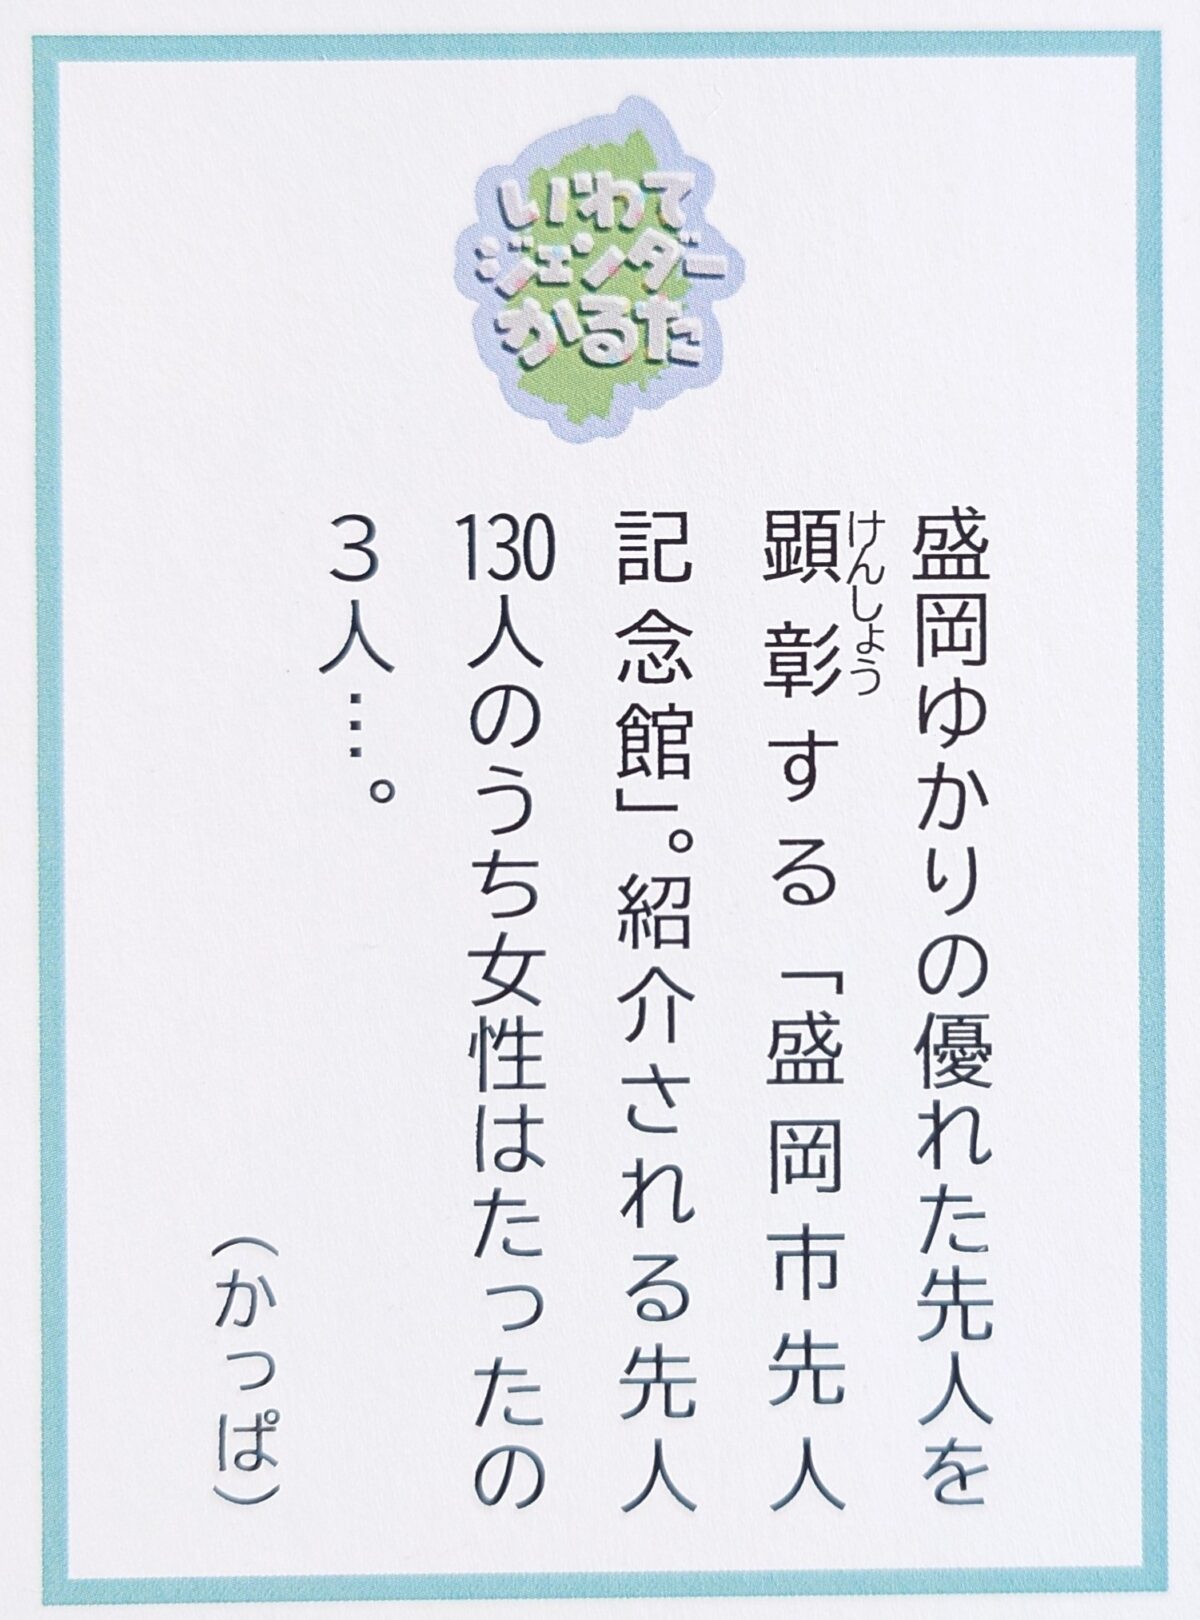 いわて
ジェンダー
かるた
盛岡ゆかりの優れた先人を
けんしょう
顕彰する「盛岡市先人
記念館」。紹介される先人
130人のうち女性はたったの
3人…。
（かっぱ）